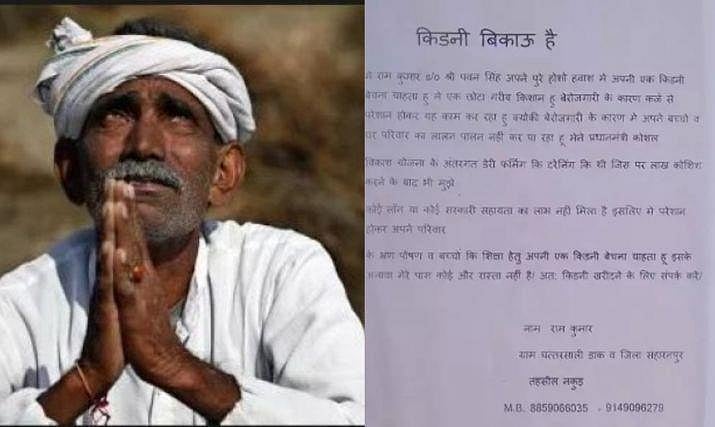 किडनी बिकाऊ है
मै राम कुमार s/o श्री पवन सिंह अपने पुरे होशो हवाश मे अपनी एक किडनी
बेचना चाहता हू मे एक छोटा गरीब किसान हू बेरोजगारी के कारण कर्ज से
परेशान होकर यह काम कर रहा हू क्योकी बेरोजगारी के कारण मे अपने बच्चो व
घर परिवार का लालन पालन नही कर पा रहा हू मेने प्रधानमंत्री कोशल
विकाश योजना के अंतरगत डेरी फर्निंग कि टरेनिंग कि थी जिस पर लाख कोशिश
करने के बाद भी मुझे
कोई लॉन या कोई सरकारी सहायता का लाभ नही मिला है इसलिए मे परेशान
होकर अपने परिवार
के भ्रण पोषण व बच्चो कि शिक्षा हेतु अपनी एक किडनी बेचना चाहता हू इसके
अलावा मेरे पास कोई और रास्ता नही है/ अत: किडनी खरीदने के लिए संपर्क करें/
नाम राम कुमार
ग्राम चत्तरसाली डाक व जिला सहारनपुर
तहसील नकुड
M.B. 8859066035 - 9149096279